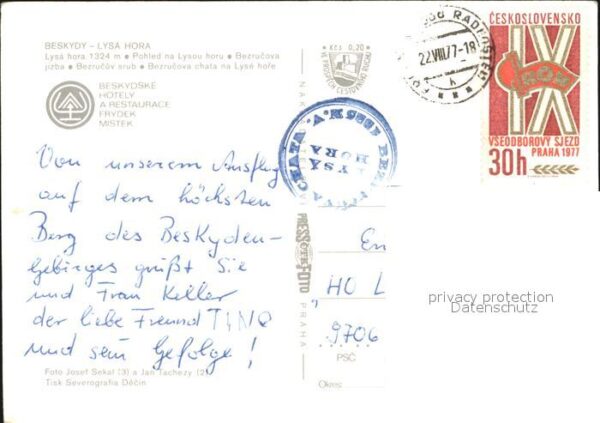 BESKYDY – LYSA HORA
Lysa hora 1324 m • Pohled na Lysou horu • Bezručova
jizba • Bezručův srub • Bezručova chata na Lysé hoře
BESKYDSKÉ
HOTELY
A RESTAURACE
FRÝDEK
MÍSTEK
Kčs 0,20
VE PROSPĚCH CESTOVNÍHO RUCHU
22.VIII.77-18
h
ČESKOSLOVENSKO
IX
VŠEODBOROVÝ SJEZD
PRAHA 1977
30h
LYSÁ
HORA
Von unserem Ausflug
auf dem höchsten
Berg des Beskyden-
Gebirges grüßt Sie
und Frau Keller
der liebe Freund TINO
und sein Gefolge!
PRESSFOTO
PRAHA
En
HO L
9706
PSČ
Okres:
privacy protection
Datenschutz
Foto Josef Sekal (3) a Jan Tachezy (2)
Tisk Severografia Děčín